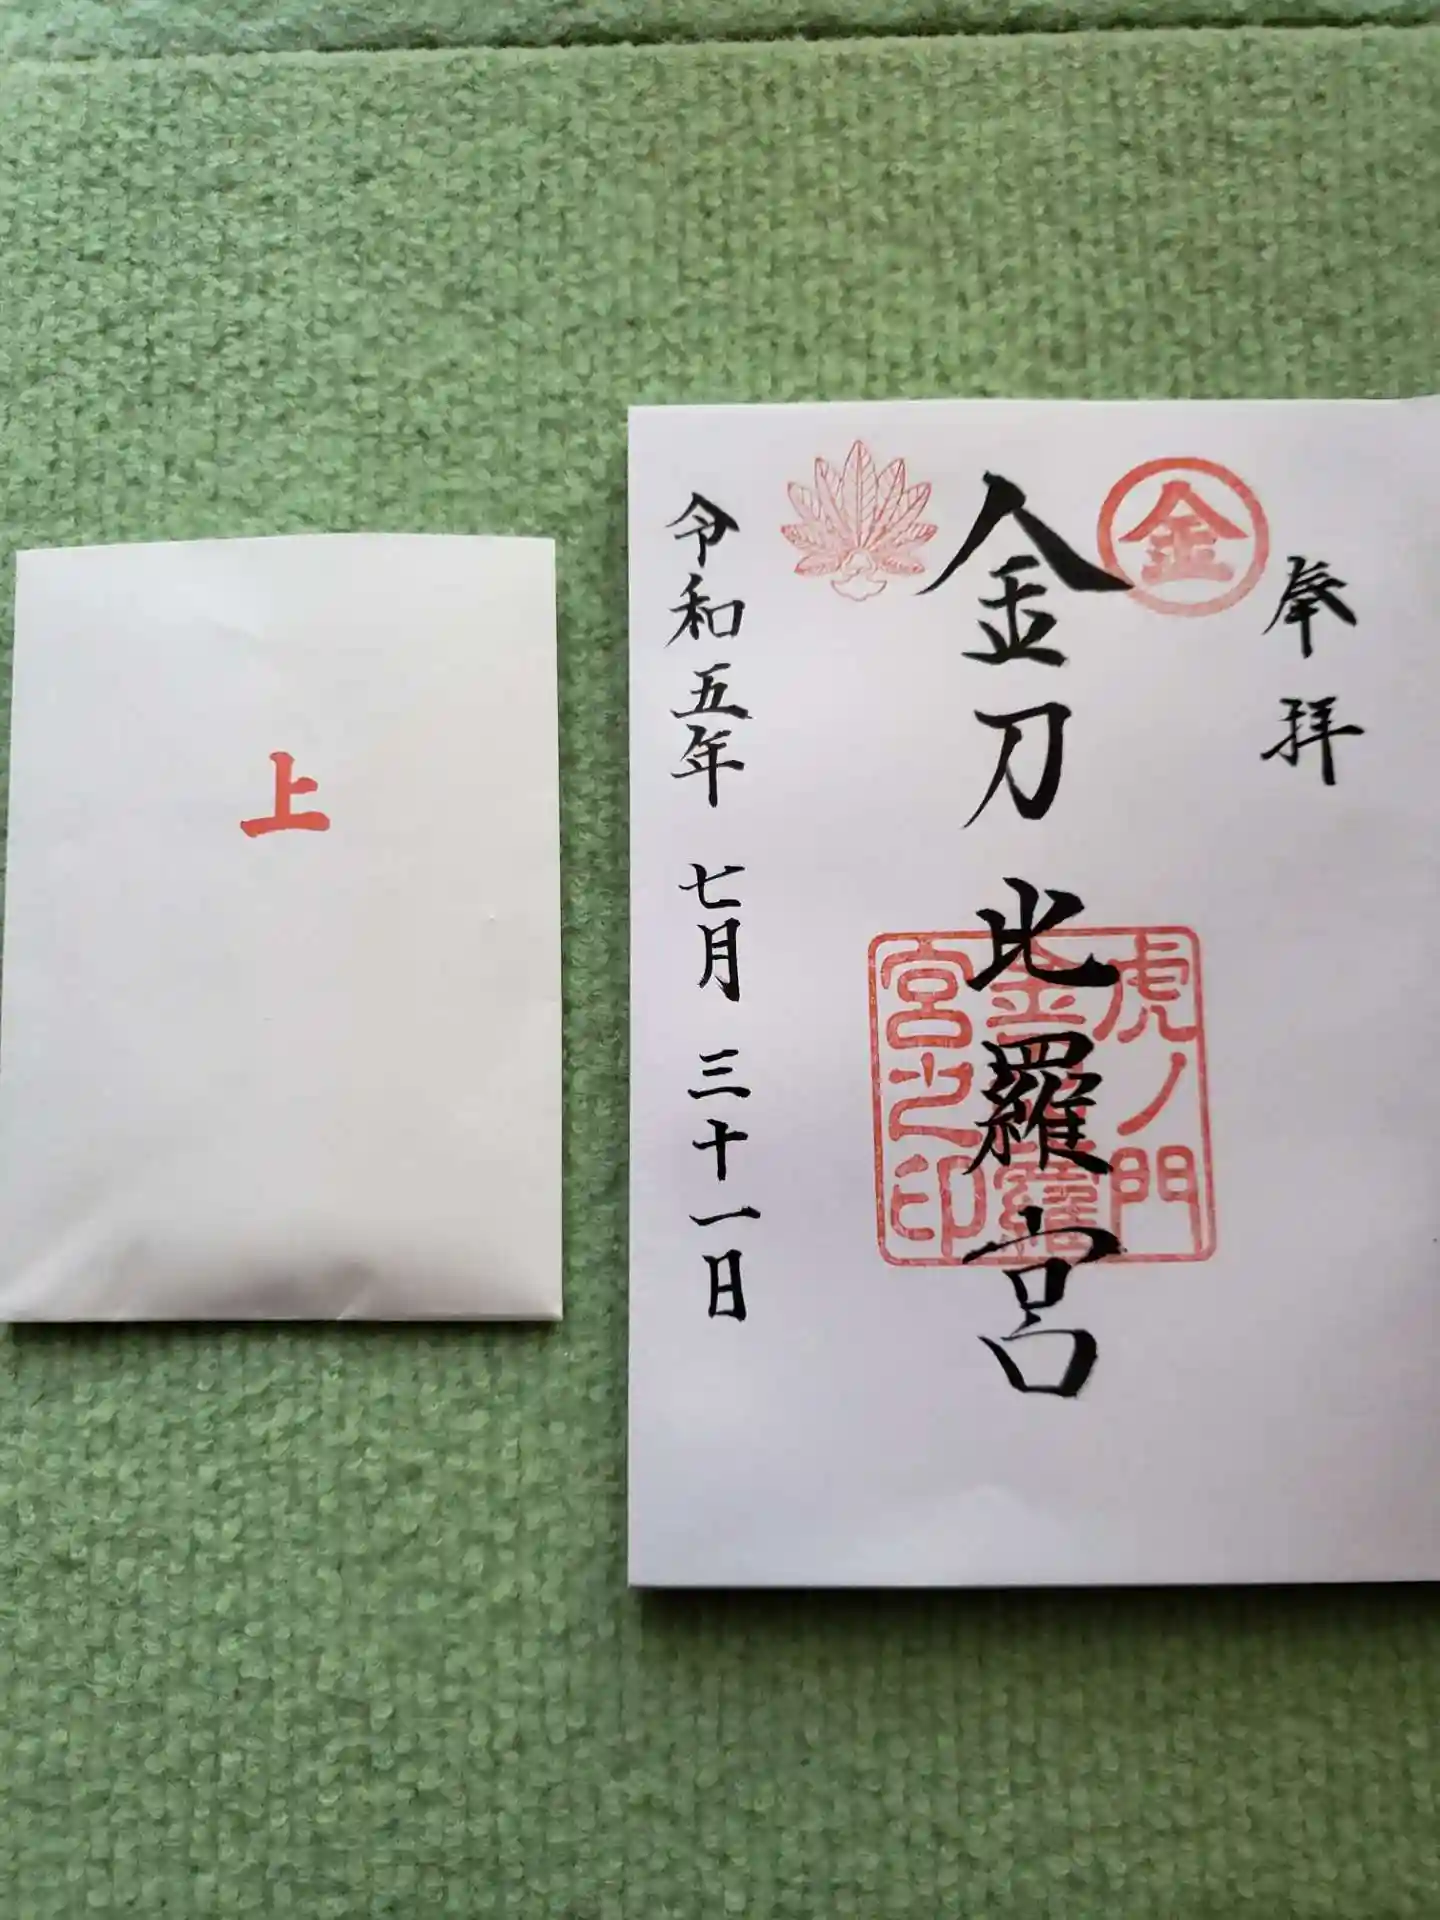 奉拝
金
金刀比羅宮
虎ノ門
金刀比羅
宮之印
令和五年 七月 三十一日
上